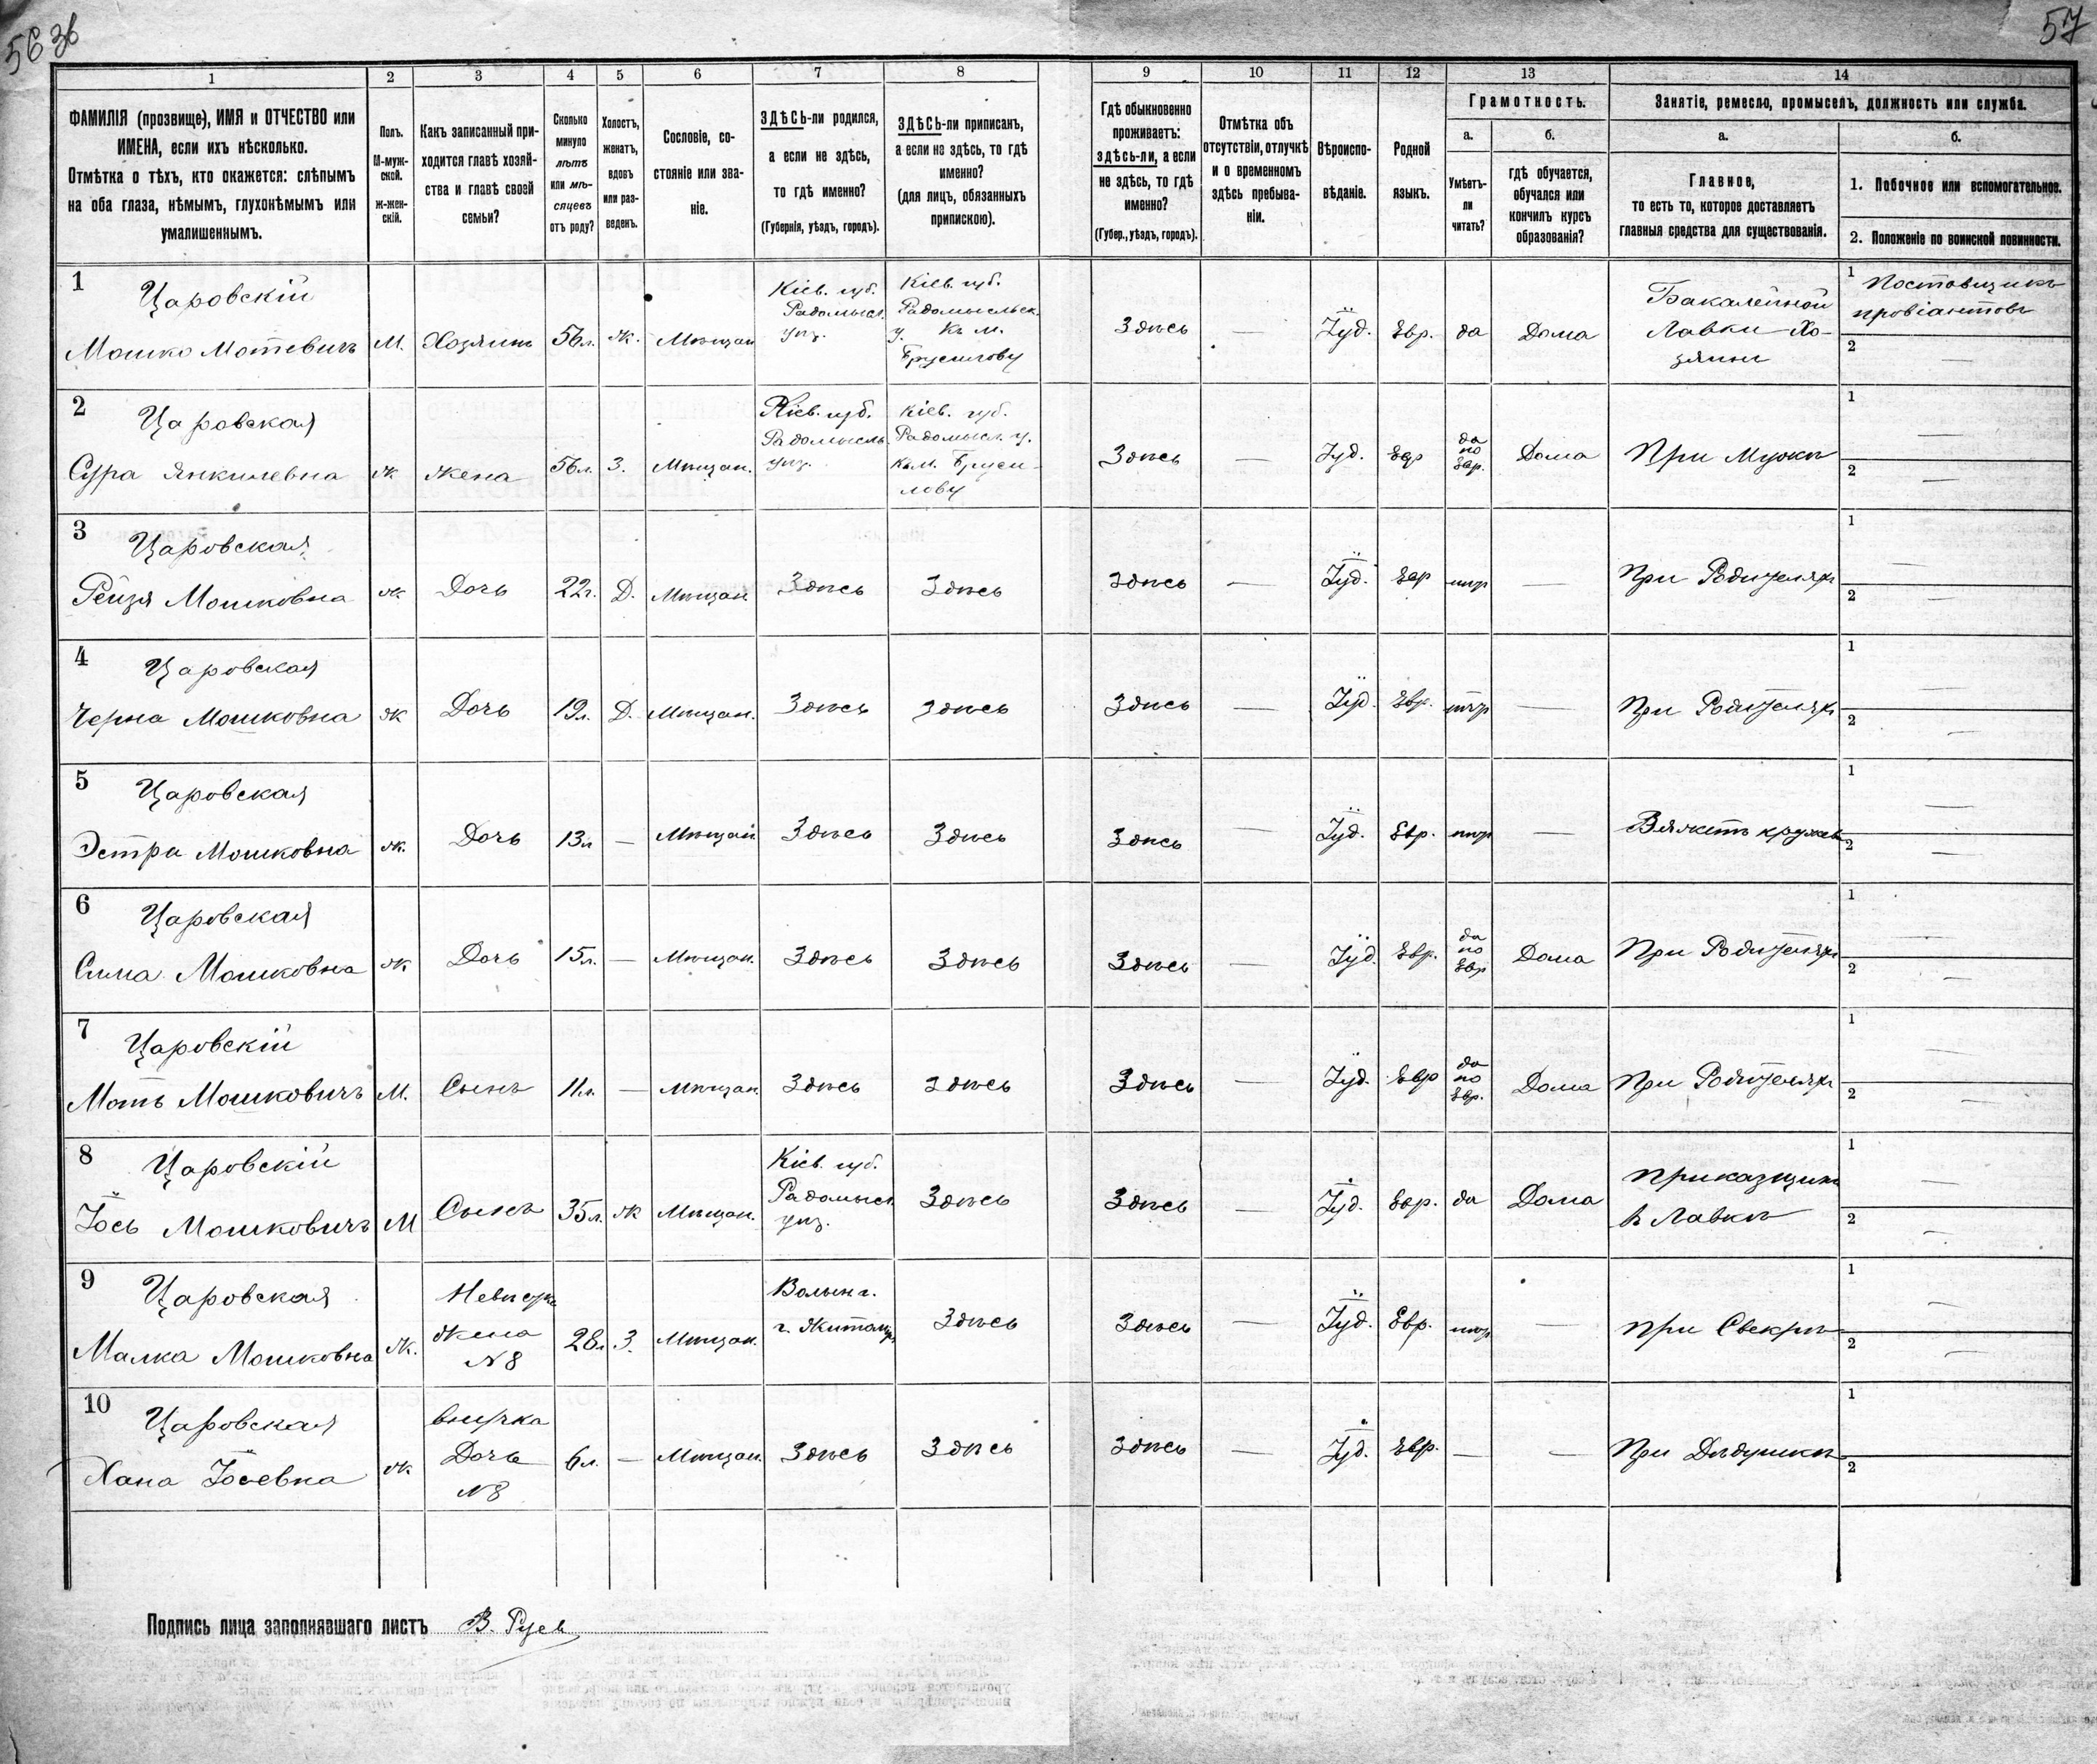 56 об
57
1 2 3 4 5 6 7 8 9 10 11 12 13 14
ФАМИЛІЯ (прозвище), ИМЯ и ОТЧЕСТВО или
ИМЕНА, если ихъ нѣсколько.
Отмѣтка о тѣхъ, кто окажется: слѣпымъ
на оба глаза, нѣмымъ, глухонѣмымъ или
умалишеннымъ.
Полъ.
М-муж-
ской.
ж-жен-
скій.
Какъ записанный при-
ходится главѣ хозяй-
ства и главѣ своей
семьи?
Сколько
минуло
лѣтъ
или мѣ-
сяцевъ
отъ роду?
Холостъ,
женатъ,
вдовъ
или раз-
веденъ.
Сословіе, со-
стояніе или зва-
ніе.
ЗДѢСЬ-ли родился,
а если не здѣсь,
то гдѣ именно?
(Губернія, уѣздъ, городъ).
ЗДѢСЬ-ли приписанъ,
а если не здѣсь, то гдѣ
именно?
(для лицъ, обязанныхъ
припискою).
Гдѣ обыкновенно
проживаетъ:
здѣсь-ли, а если
не здѣсь, то гдѣ
именно?
(Губер., уѣздъ, городъ).
Отмѣтка объ
отсутствіи, отлучкѣ
и о временномъ
здѣсь пребыва-
ніи.
Вѣроиспо-
вѣданіе.
Родной
языкъ.
Грамотность.
а.
Умѣетъ-
ли
читать?
б.
гдѣ обучается,
обучался или
кончилъ курсъ
образованія?
Занятіе, ремесло, промыселъ, должность или служба.
а.
Главное,
то есть то, которое доставляетъ
главныя средства для существованія.
б.
1. Побочное или вспомогательное.
2. Положеніе по воинской повинности.
1
Царовскій
Мошко Мотевичъ
М.
Хозяинъ
56л.
ж.
Мѣщан
Кіев. губ.
Радомысл.
уѣз.
Кіев. губ.
Радомысльск.
у. Къ м.
Брусилову
Здѣсь
—
Іуд.
Евр.
да
Дома
Бакалейной
Лавки Хо-
зяинъ
1 Поставщикъ
провіантовъ
2 —
2
Царовская
Сура Янкилевна
ж
жена
56л.
З.
Мѣщан.
Кіев. губ.
Радомысль.
уѣз.
Кіев. губ.
Радомысл. у.
Къ м. Бруси-
лову
Здѣсь
—
Іуд.
Евр
да
по
Евр.
Дома
При Мужѣ
1 —
2 —
3
Царовская
Рейзя Мошковна
ж.
Дочь
22г.
Д.
Мѣщан
Здѣсь
Здѣсь
Здѣсь
—
Іуд.
Евр
нѣт
—
При Родителях
1 —
2 —
4
Царовская
Черна Мошковна
ж
Дочь
19л.
Д.
Мѣщан.
Здѣсь
Здѣсь
Здѣсь
—
Іуд.
Евр.
нѣт
—
При Родителях
1 —
2 —
5
Царовская
Эстра Мошковна
ж.
Дочь
13л
—
Мѣщан
Здѣсь
Здѣсь
Здѣсь
—
Іуд.
Евр.
нѣт
—
Вяжетъ кружев
1 —
2 —
6
Царовская
Сима Мошковна
ж
Дочь
15л.
—
Мѣщан.
Здѣсь
Здѣсь
Здѣсь
—
Іуд.
Евр.
да
по
Евр
Дома
При Родителях
1 —
2 —
7
Царовскій
Мать Мошковичъ
М.
Сынъ
11л.
—
Мѣщан.
Здѣсь
Здѣсь
Здѣсь
—
Іуд.
Евр
да
по
Евр.
Дома
При Родителях
1 —
2 —
8
Царовскій
Іось Мошковичъ
М
Сынъ
35л.
ж
Мѣщан.
Кіев. губ.
Радомысл
уѣз.
Здѣсь
Здѣсь
—
Іуд.
Евр.
да
Дома
Приказщикъ
в Лавкѣ
1 —
2 —
9
Царовская
Малка Мошковна
Ж.
Невѣстка
жена
№8
28л
З.
Мѣщан.
Волын г.
г. Житомир
Здѣсь
Здѣсь
—
Іуд.
Евр.
нѣт
—
при Свекрѣ
1 —
2 —
10
Царовская
Хана Іосевна
ж.
внучка
Дочь
№8
6л.
—
Мѣщан.
Здѣсь
Здѣсь
Здѣсь
—
Іуд.
Евр.
—
—
При Дѣдушкѣ
1 —
2 —
Подпись лица заполнявшаго листъ В.